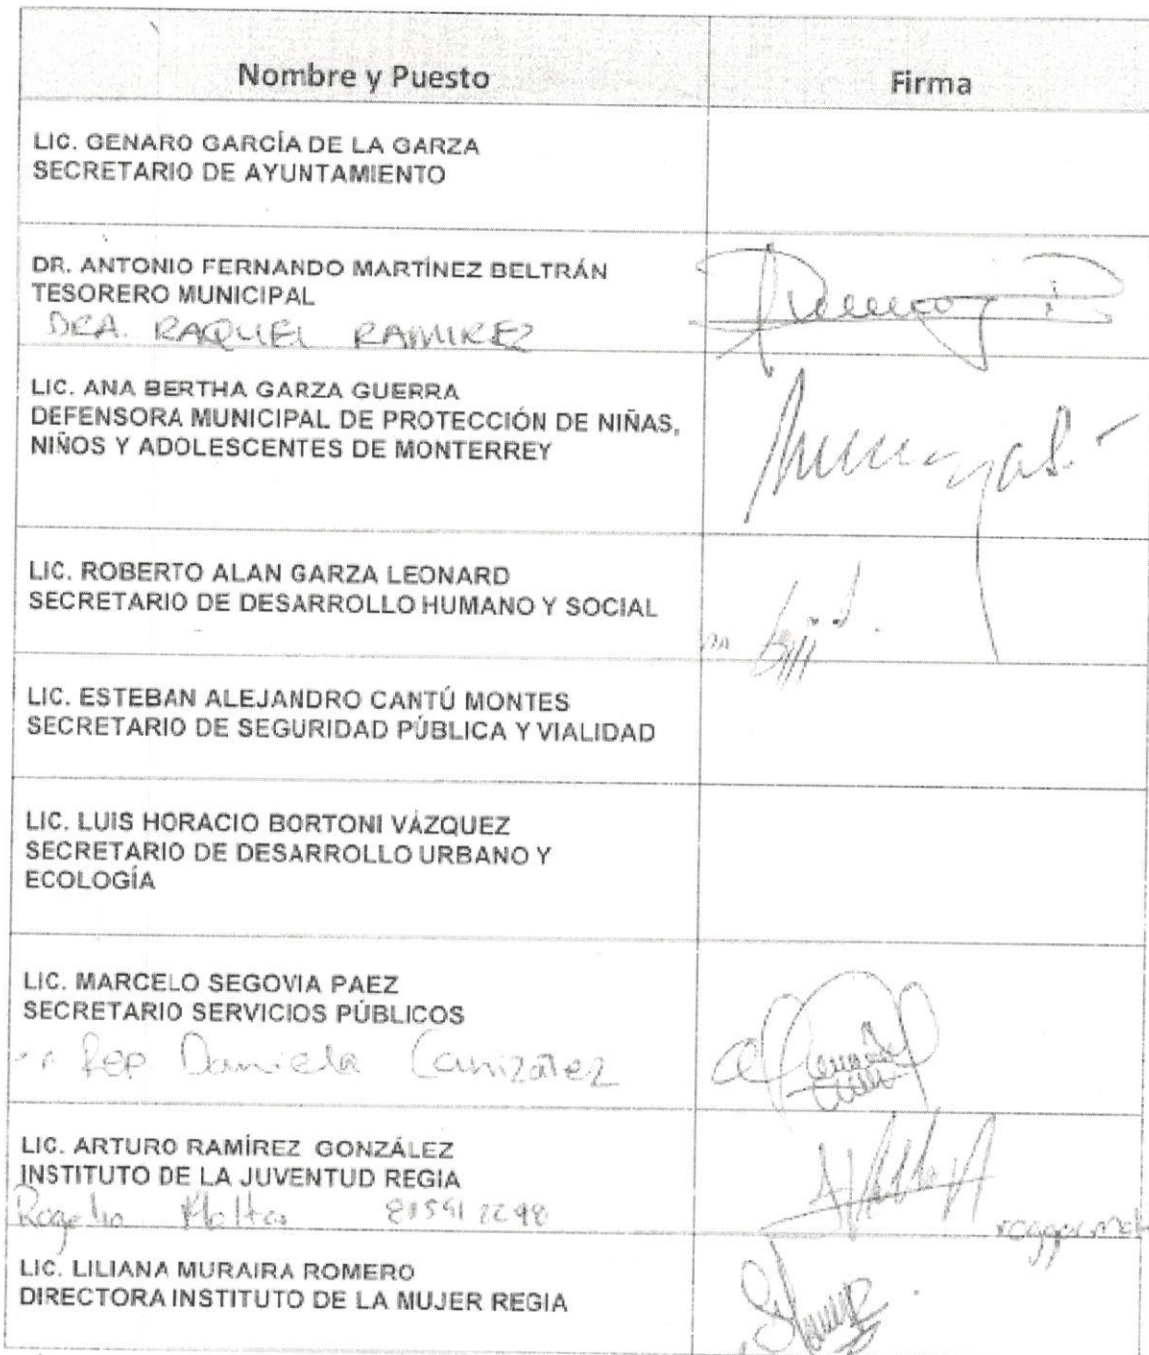 Nombre y Puesto
Firma
LIC. GENARO GARCÍA DE LA GARZA
SECRETARIO DE AYUNTAMIENTO
DR. ANTONIO FERNANDO MARTÍNEZ BELTRÁN
TESORERO MUNICIPAL
DRA. RAQUEL RAMIREZ
LIC. ANA BERTHA GARZA GUERRA
DEFENSORA MUNICIPAL DE PROTECCIÓN DE NIÑAS,
NIÑOS Y ADOLESCENTES DE MONTERREY
LIC. ROBERTO ALAN GARZA LEONARD
SECRETARIO DE DESARROLLO HUMANO Y SOCIAL
LIC. ESTEBAN ALEJANDRO CANTÚ MONTES
SECRETARIO DE SEGURIDAD PÚBLICA Y VIALIDAD
LIC. LUIS HORACIO BORTONI VÁZQUEZ
SECRETARIO DE DESARROLLO URBANO Y
ECOLOGÍA
LIC. MARCELO SEGOVIA PAEZ
SECRETARIO SERVICIOS PÚBLICOS
Rep Daniela Canizalez
LIC. ARTURO RAMÍREZ GONZÁLEZ
INSTITUTO DE LA JUVENTUD REGIA
Rogelio
LIC. LILIANA MURAIRA ROMERO
DIRECTORA INSTITUTO DE LA MUJER REGIA